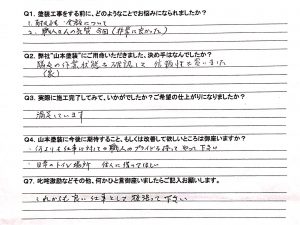 Q1. 塗装工事をする前に、どのようなことでお悩みになられましたか？
1. 耐久性 金額について
2. 職人さんの気質 今回（非常に良かった）
Q2. 弊社"山本塗装"にご用命いただきました、決め手はなんでしたか？
隣家の作業状態を確認して 信頼性を買いました
（良）
Q3. 実際に施工完了してみて、いかがでしたか？ご希望の仕上がりになりましたか？
満足しています
Q4. 山本塗装に今後に期待すること、もしくは改善して欲しいところは御座いますか？
・何よりも仕事に対しての職人のプライドを持ってやって下さい
・日中のトイレ場所 使って ほしい
Q7. 叱咤激励などその他、何かひと言御座いましたらご記入お願いします。
これからも良い仕事として頑張って下さい